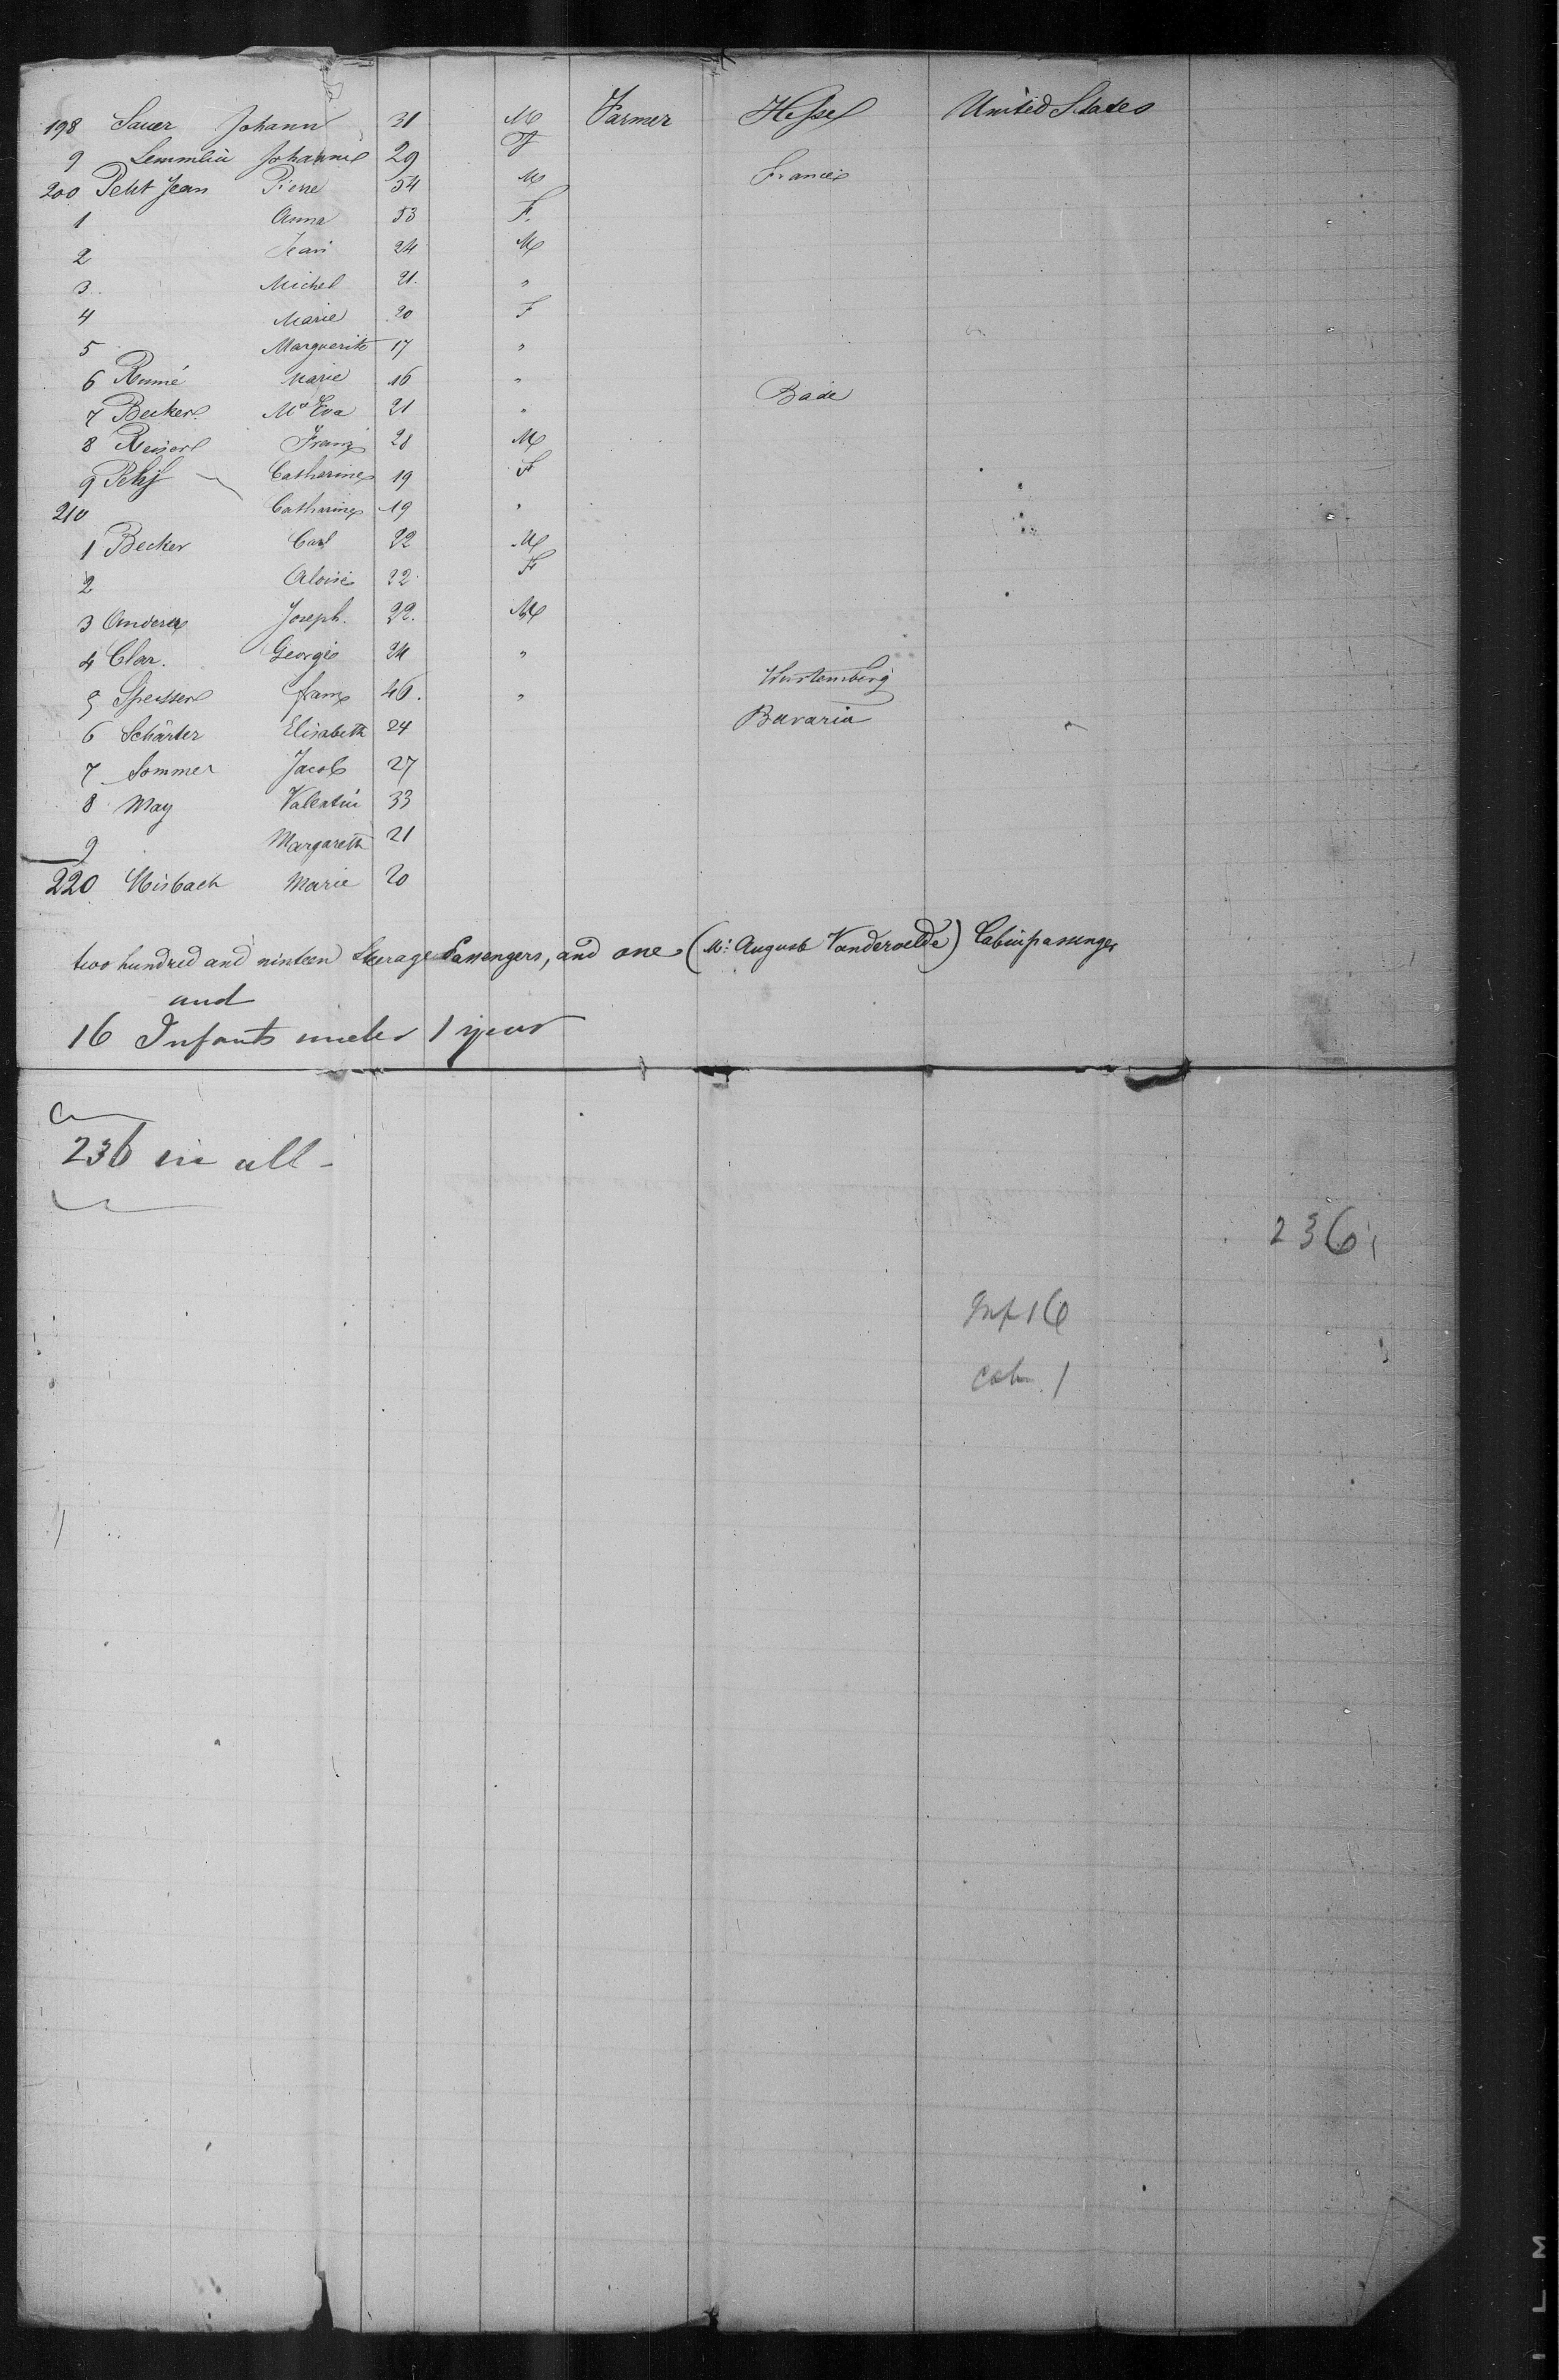 198 Sauer Johann 31 M Farmer Hessel United States
9 Lemmlin Johanne 29 F
200 Petit Jean Pierre 54 M France
1 Anna 53 F.
2 Jean 24 M
3 Michel 21. "
4 Marie 20 F
5 Marguerite 17 "
6 Rumé Marie 16 "
7 Becker Ma Eva 21 " Bade
8 Franz 28 M
9 Catharine 19 F
210 Catharine 19 "
1 Becker Carl 22 M
2 Aloise 22 F
3 Anderer Joseph. 22. M
4 Clar. George 24 "
5 Speisser Franz 46. " Wurtemberg
6 Schärter Elisabeth 24 Bavaria
7 Sommer Jacob 27
8 May Valentin 33
9 Margareth 21
220 Misbach Marie 20
two hundred and ninteen Steerage Passengers, and one (Mr. August Vandervelde) Cabinpassenger
and
16 Infants under 1 year
236 in all -
236
Inf 16
Cab. 1
L M